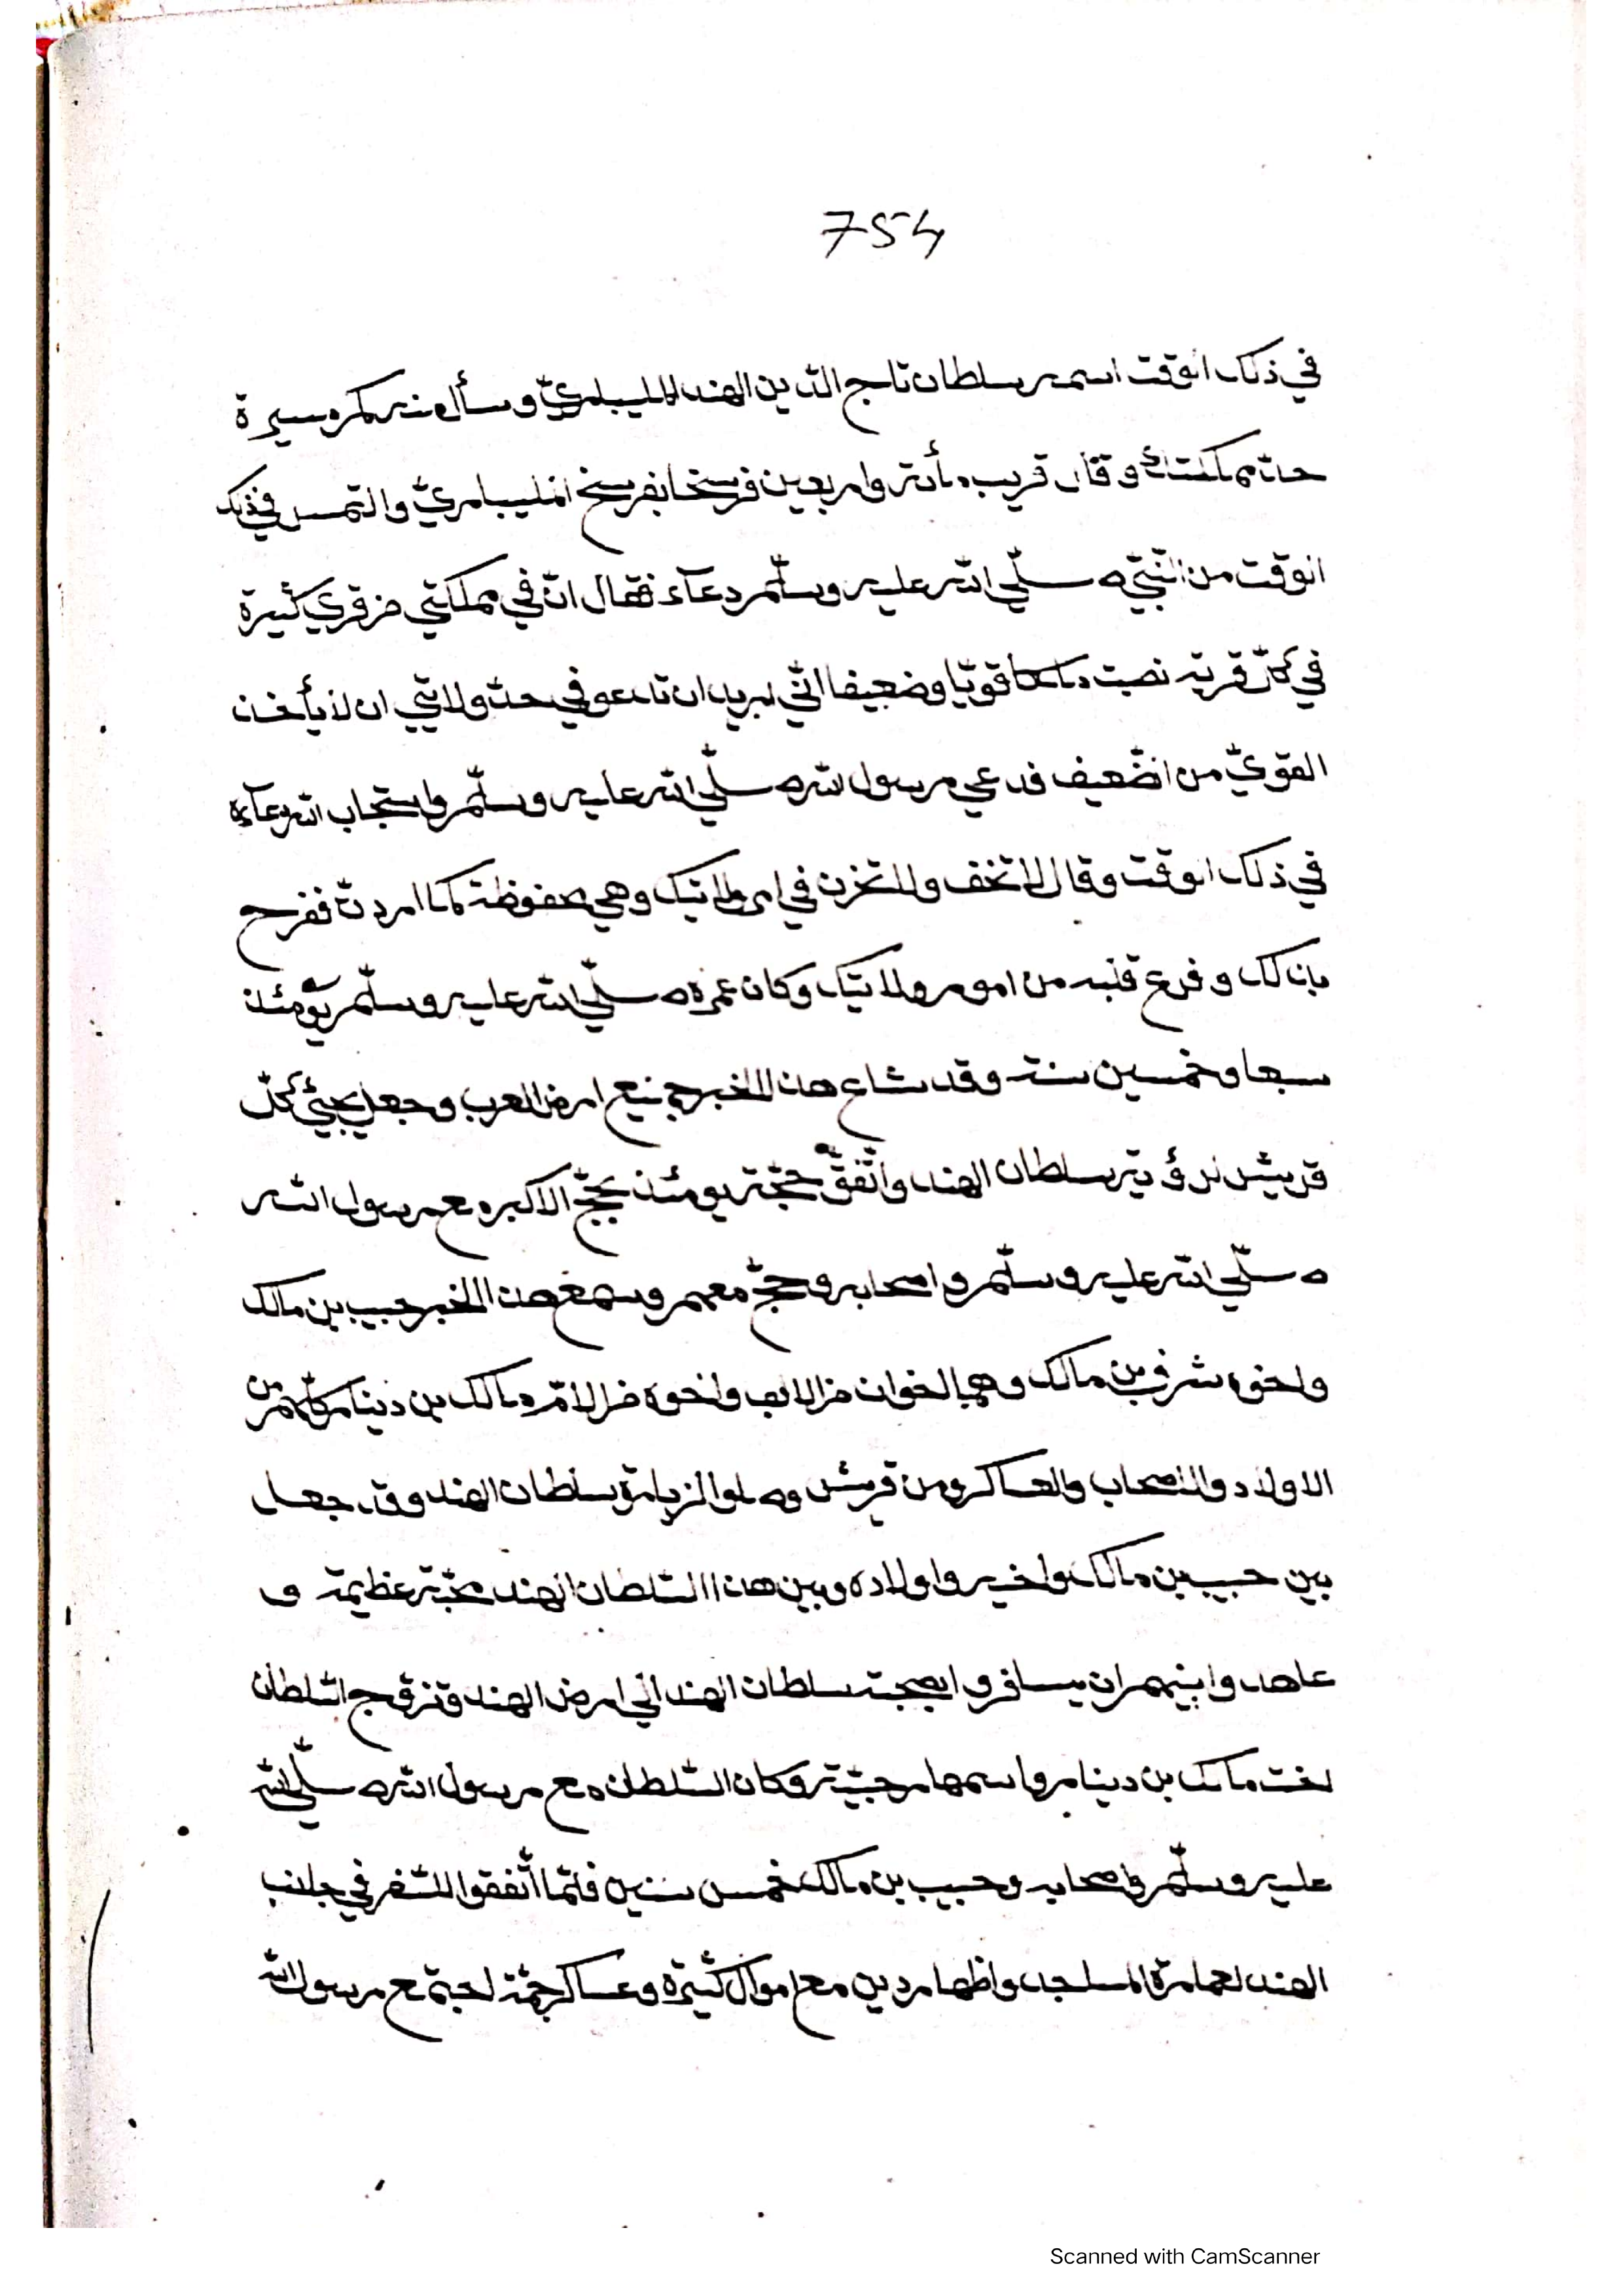 754
في ذلك الوقت اسمه سلطان تاج الدّين الهند المليباريّ وسأل منه كم مسيرة
حدّ مملكتك وقال قريب مأته واربعين فرسخا بفرسخ المليباريّ والتمس في ذلك
الوقت من النّبيّ صلّي الله عليه وسلّم دعآء فقال انّ في مملكتي من قري كثيرة
في كلّ قرية نصبت ملكا قويّا وضعيفا انّي نريد ان تدعو في حدّ ولايتي ان لا يأخذ
القويّ من الضّعيف فدعي رسول الله صلّي الله عليه وسلّم واستجاب الله دعآءه
في ذلك الوقت وقال لا تخف ولا تحزن في امر ولايتك وهي محفوظة كما اردت ففرح
بذلك وفرغ قلبه من امور ولايتك وكان عمره صلّي الله عليه وسلّم يومئذ
سبعا وخمسين سنة وقد شاع هذا الخبر جميع ارض العرب وجعل يجيئ كلّ
قريش لرؤية سلطان الهند واتّفق حجّته يومئذ بحجّ الاكبر مع رسول الله
صلّي الله عليه وسلّم واصحابه وحجّ معهم وسمع هذا الخبر حبيب بن مالك
واخوه شرف بن مالك وهما اخوان من الاب واخوه من الامّ مالك بن دينار كلّهم من
الاولاد والاصحاب والعساكر من قريش وصلوا لزيارة سلطان الهند وقد جعل
بين حبيب بن مالك واخيه واولاده وبين هذا السّلطان الهند محبّة عظيمة و
عاهدوا بينهم ان يسافروا بصحبة سلطان الهند الي ارض الهند وتزوّج السّلطان
اخت مالك بن دينار واسمها رجيّة وكان السّلطان مع رسول الله صلّي الله
عليه وسلّم واصحابه وحبيب بن مالك خمس سنين فلمّا اتّفقوا للسّفر في جانب
الهند لعمارة المساجد واظهار دين مع اموال كثيرة وعساكر جمّة اجتمع رسول الله
Scanned with CamScanner